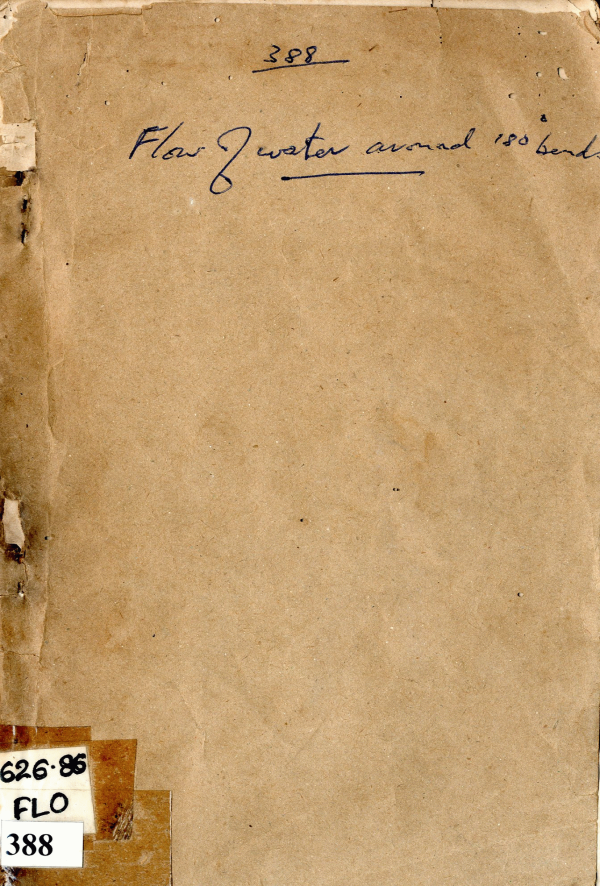 388
Flow of water around 180° bends
626.86
FLO
388